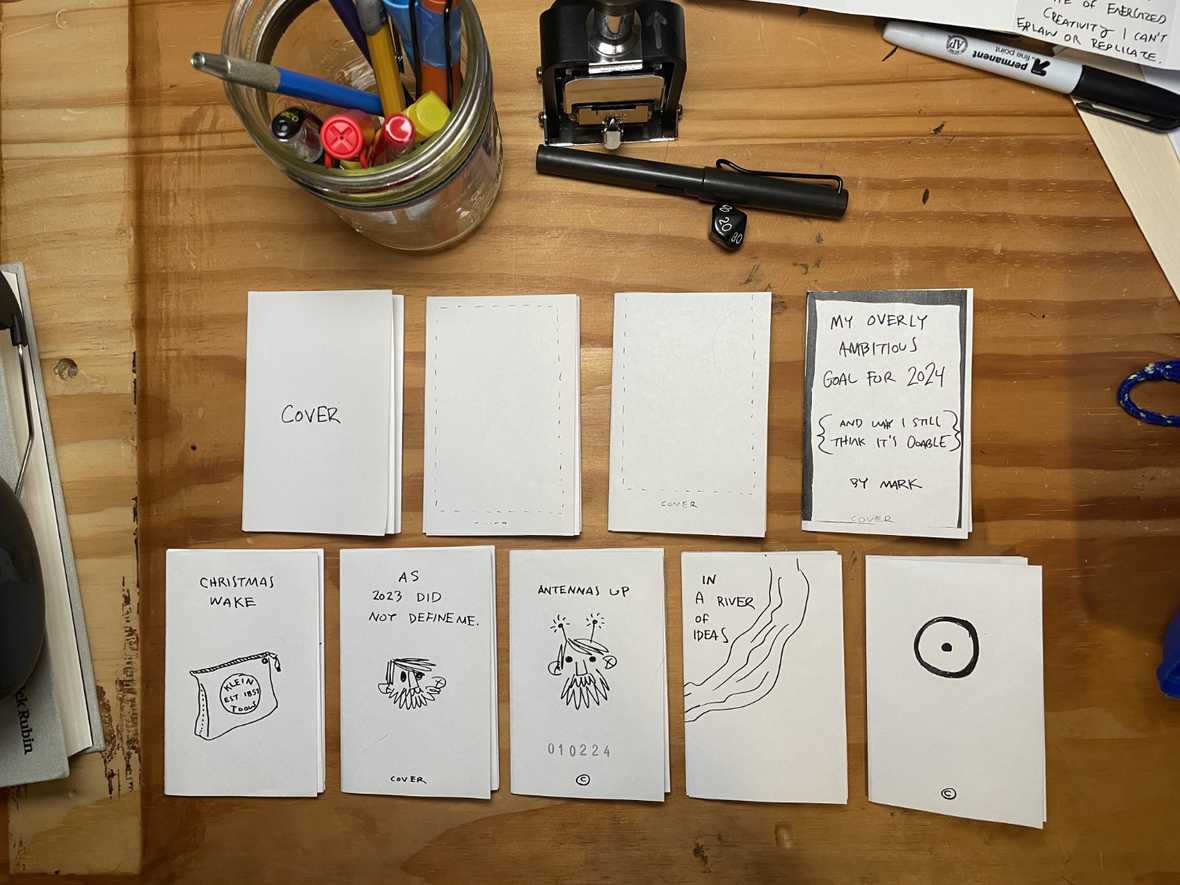 OF ENERGIZED
CREATIVITY I CAN'T
OR REPLICATE.
permanent
fine point
AP
20
80
COVER
COVER
MY OVERLY
AMBITIOUS
GOAL FOR 2024
{ AND WHY I STILL
THINK IT'S DOABLE }
BY MARK
COVER
CHRISTMAS
WAKE
KLEIN
EST 1857
TOOLS
AS
2023 DID
NOT DEFINE ME.
COVER
ANTENNAS UP
010224
©
IN
A RIVER
OF
IDEAS
©
ck Rubin